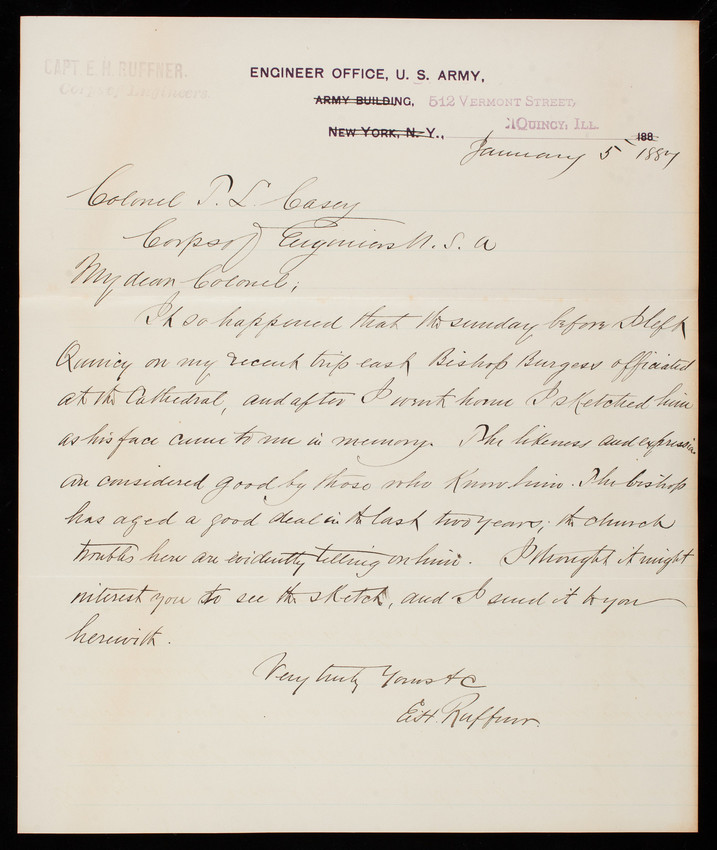 CAPT E. H. RUFFNER.
Corps of Engineers.
ENGINEER OFFICE, U. S. ARMY,
ARMY BUILDING, 512 VERMONT STREET,
NEW YORK, N. Y., QUINCY, ILL. 188
January 5 1884
Colonel T. L. Casey
Corps of Engineers U. S. A
My dear Colonel;
It so happened that the sunday before I left
Quincy on my recent trip east Bishop Burgess officiated
at the Cathedral, and after I went home I sketched him
as his face came to me in memory. The likeness and expression
are considered good by those who know him. The bishop
has aged a good deal in the last two years; the church
troubles here are evidently telling on him. I thought it might
interest you to see the sketch, and I send it to you
herewith.
Very truly Yours &c
E. H. Ruffner.